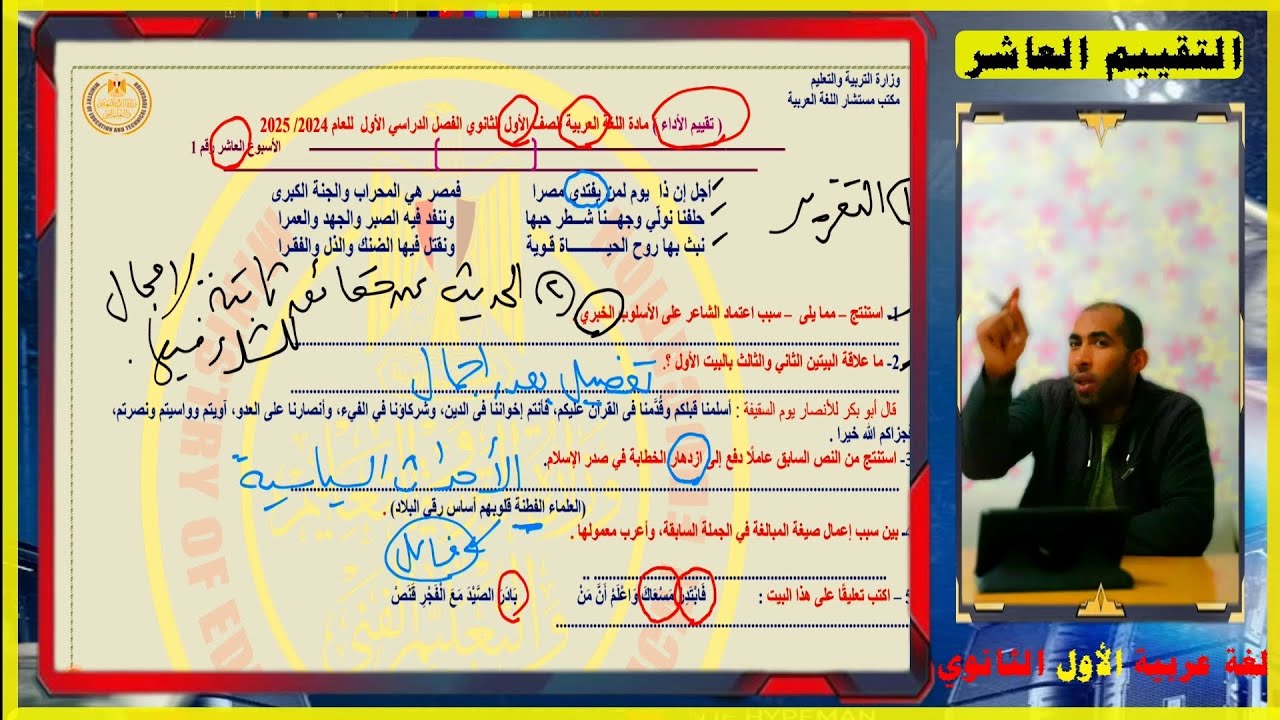 التقييم العاشر
وزارة التربية والتعليم
مكتب مستشار اللغة العربية
( تقييم الأداء ) مادة اللغة العربية للصف الأول الثانوي الفصل الدراسي الأول للعام 2024/ 2025
الأسبوع العاشر رقم 1
أجل إن ذا يوم لمن يفتدي مصرا فمصر هي المحراب والجنة الكبرى
حلفنا نولّي وجهنا شطر حبها وننفد فيه الصبر والجهد والعمرا
نبث بها روح الحياة قوية ونقتل فيها الضنك والذل والفقرا
١) التقرير
٢) الحديث عن حقائق ثابتة لا مجال للشك فيها.
1- استنتج – مما يلى – سبب اعتماد الشاعر على الأسلوب الخبري
2- ما علاقة البيتين الثاني والثالث بالبيت الأول ؟.
تفصيل بعد إجمال
قال أبو بكر للأنصار يوم السقيفة : أسلمنا قبلكم وقُدِّمنا فى القرآن عليكم، فأنتم إخواننا فى الدين، وشركاؤنا في الفيء، وأنصارنا على العدو، آويتم وواسيتم ونصرتم،
فجزاكم الله خيرا .
3- استنتج من النص السابق عاملًا دفع إلى ازدهار الخطابة في صدر الإسلام.
الأحداث السياسية
(العلماء الفطنة قلوبهم أساس رقي البلاد) .
4- بين سبب إعمال صيغة المبالغة في الجملة السابقة، وأعرب معمولها .
فاعل
5 – اكتب تعليقًا على هذا البيت : فَابْتَدِرْ مَسْعَاكَ وَاعْلَمْ أَنَّ مَنْ بَادَرَ الصَّيْدَ مَعَ الْفَجْرِ قَنَصْ
لغة عربية الأول الثانوي